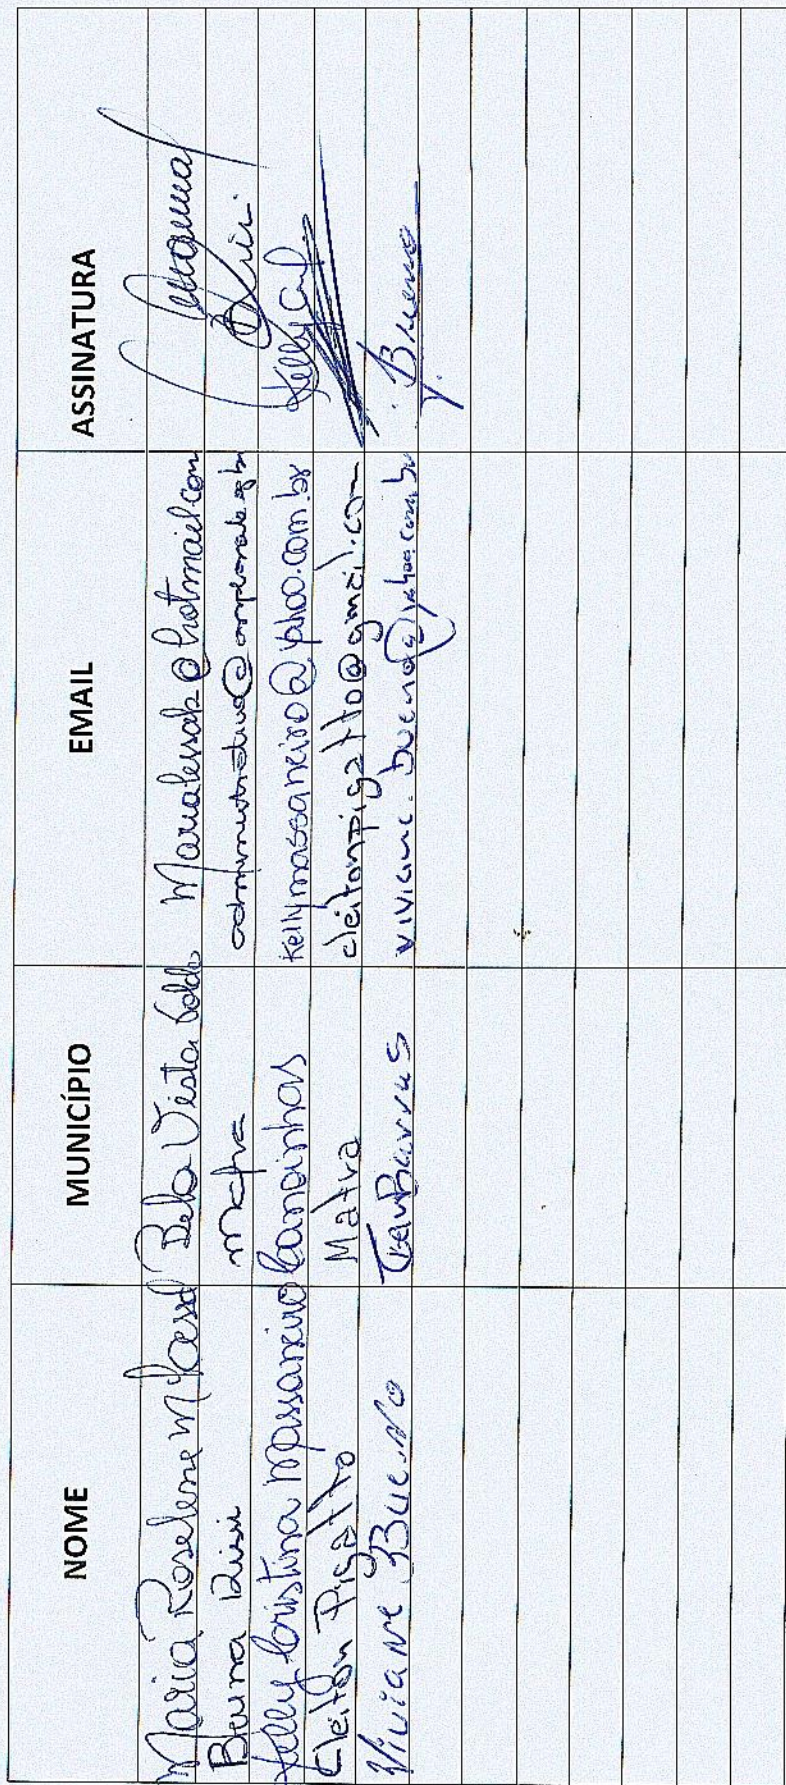 NOME MUNICÍPIO EMAIL ASSINATURA
Maria Roselene M Bela Vista Toldo @hotmail.com
Bruna Mafra administrativo@
Kelly Cristina Massaneiro Canoinhas kellymassaneiro@yahoo.com.br Kelly
Cleiton Pigatto Mafra cleitonpigatto@gmail.com
Viviane Bueno Tres Barras viviane.bueno@yahoo.com.br V. Bueno